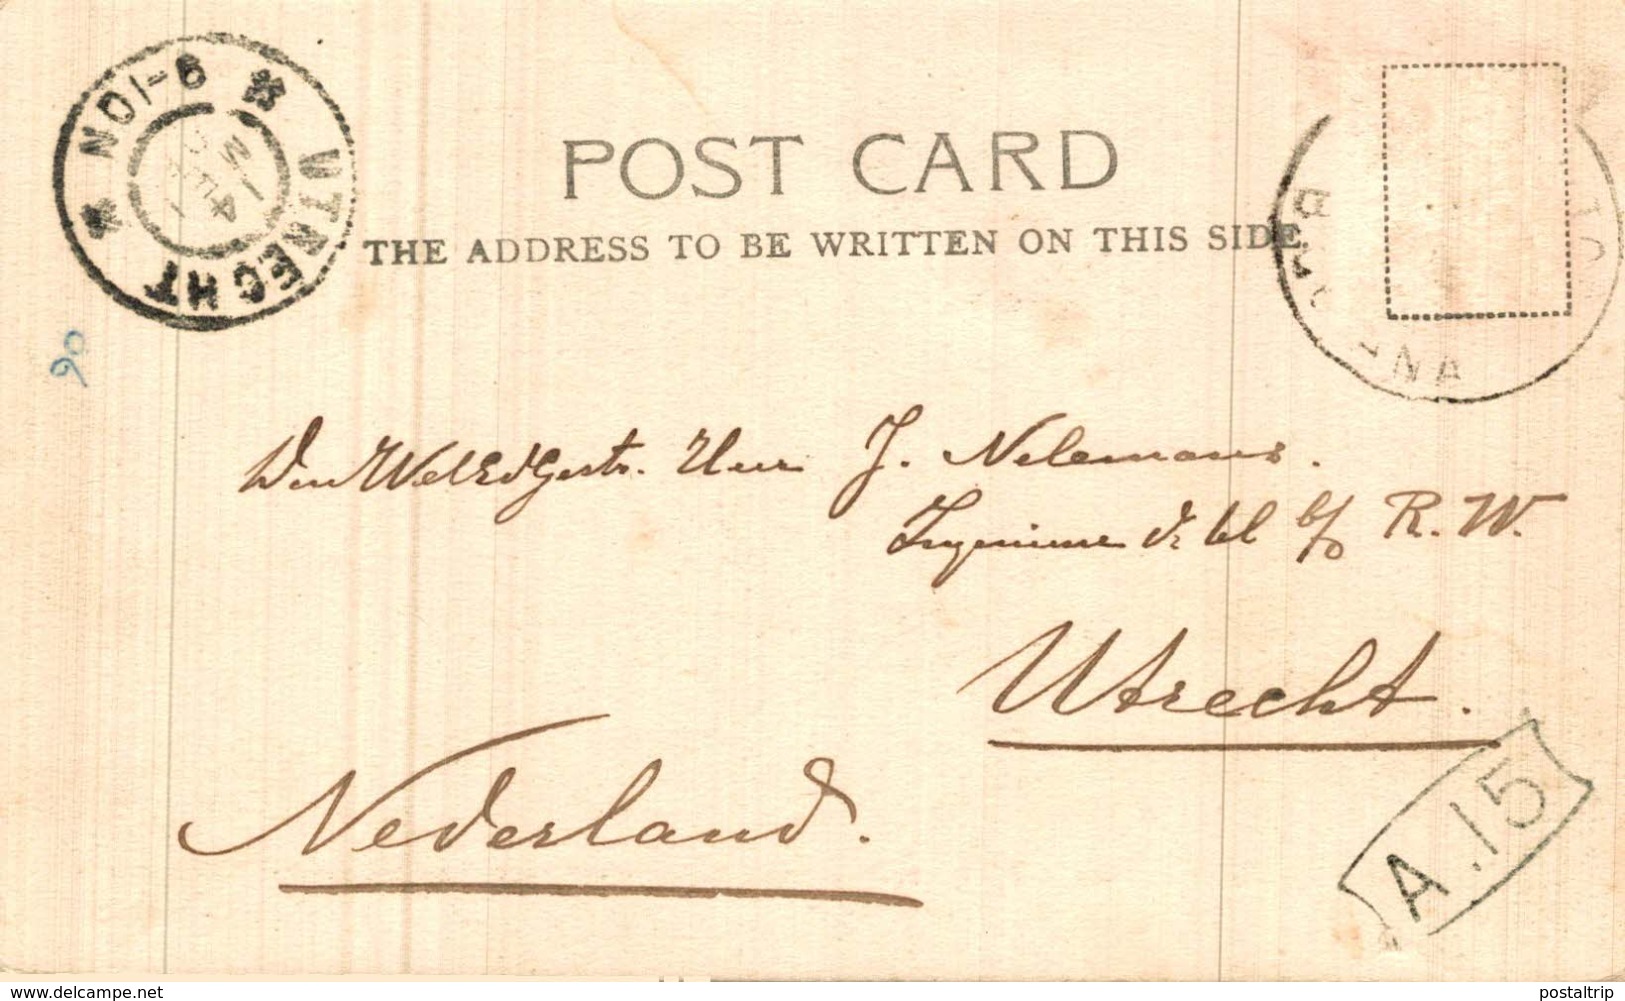 UTRECHT
NO 1-6
POST CARD
THE ADDRESS TO BE WRITTEN ON THIS SIDE
90
Den WelEdGestr. Heer J. Nelemans.
Ingenieur b/d R. W.
Utrecht.
Nederland.
A.15
www.delcampe.net
postaltrip